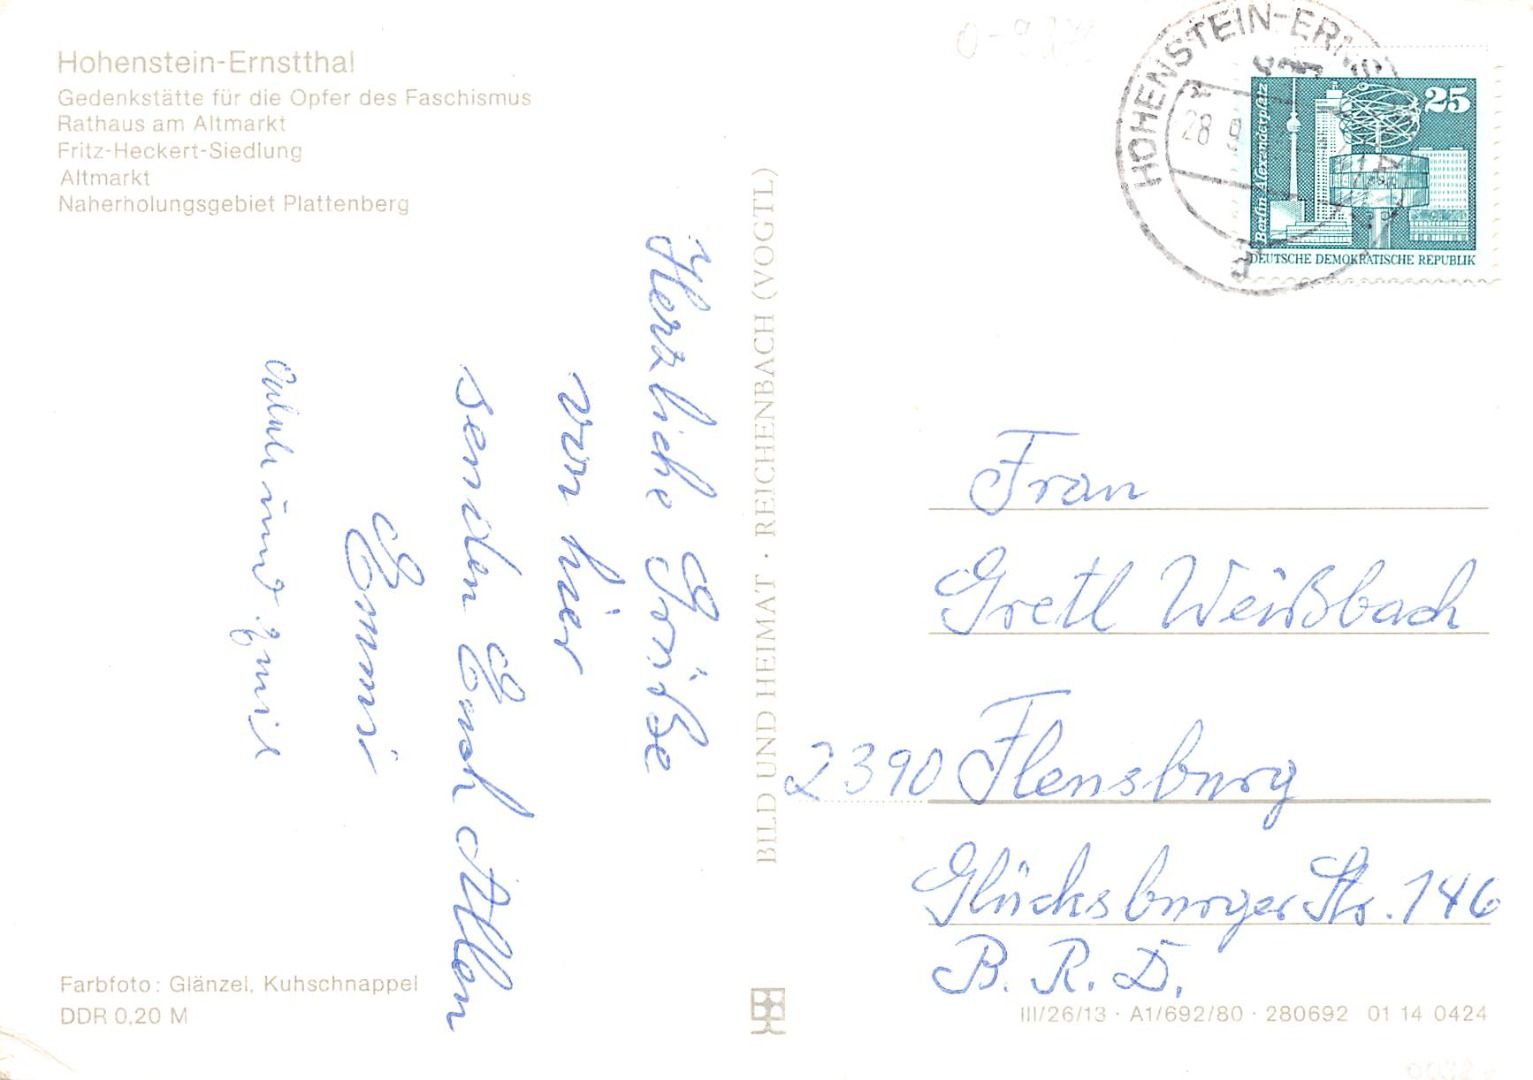 Hohenstein-Ernstthal
Gedenkstätte für die Opfer des Faschismus
Rathaus am Altmarkt
Fritz-Heckert-Siedlung
Altmarkt
Naherholungsgebiet Plattenberg
Herzliche Grüße
von hier
senden Euch Allen
Emmi
und
Farbfoto: Glänzel, Kuhschnappel
DDR 0,20 M
BILD UND HEIMAT · REICHENBACH (VOGTL)
HOHENSTEIN-ERNS
28.9
25
Berlin Alexanderplatz
DEUTSCHE DEMOKRATISCHE REPUBLIK
Frau
Gretl Weißbach
2390 Flensburg
Glücksburger Str. 146
B. R. D.
III/26/13 · A1/692/80 · 280692 01 14 0424